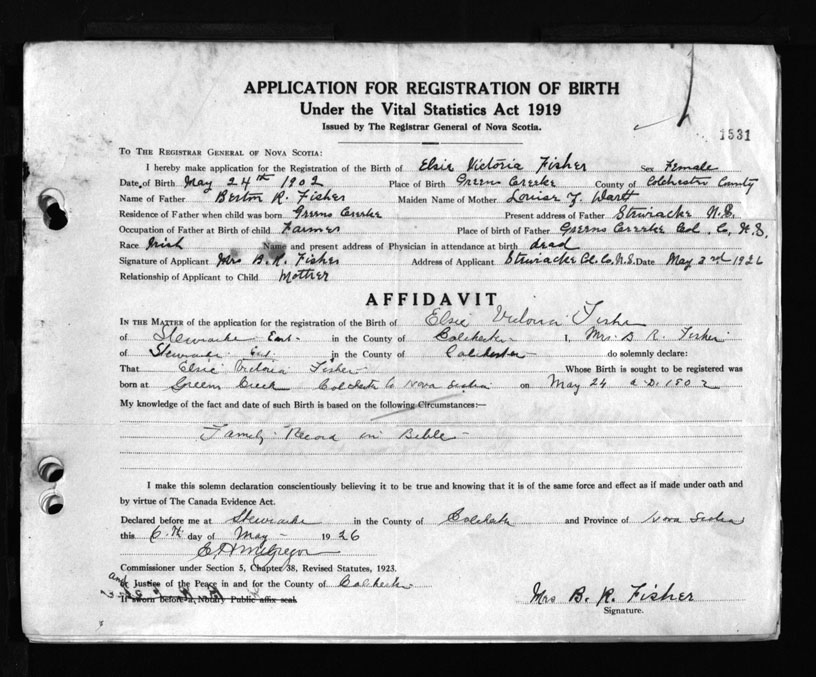 APPLICATION FOR REGISTRATION OF BIRTH
Under the Vital Statistics Act 1919
Issued by The Registrar General of Nova Scotia.
1531
TO THE REGISTRAR GENERAL OF NOVA SCOTIA:
I hereby make application for the Registration of the Birth of Elsie Victoria Fisher Sex Female
Date of Birth May 24th 1902 Place of Birth Greens Creeke County of Colchester County
Name of Father Berton R. Fisher Maiden Name of Mother Louise Y. Wartt
Residence of Father when child was born Greens Creeke Present address of Father Stewiacke N.S.
Occupation of Father at Birth of child Farmer Place of birth of Father Greens Creeke Col. Co, N.S.
Race Irish Name and present address of Physician in attendance at birth dead
Signature of Applicant Mrs B.R. Fisher Address of Applicant Stewiacke Cl. Co. N.S. Date May 3rd 1926
Relationship of Applicant to Child Mother
AFFIDAVIT
IN THE MATTER of the application for the registration of the Birth of Elsie Victoria Fisher
of Stewiacke East in the County of Colchester I, Mrs. B R. Fisher
of Stewiacke East in the County of Colchester do solemnly declare:
That Elsie Victoria Fisher Whose Birth is sought to be registered was
born at Greens Creek Colchester Co Nova Scotia on May 24 a.D. 1902
My knowledge of the fact and date of such Birth is based on the following Circumstances:—
Family Record in Bible
I make this solemn declaration conscientiously believing it to be true and knowing that it is of the same force and effect as if made under oath and
by virtue of The Canada Evidence Act.
Declared before me at Stewiacke in the County of Colchester and Province of Nova Scotia
this 6th day of May 1926
McGregor
Commissioner under Section 5, Chapter 38, Revised Statutes, 1923.
and
Justice of the Peace in and for the County of Colchester
If sworn before a Notary Public affix seal
Mrs B. R. Fisher
Signature.